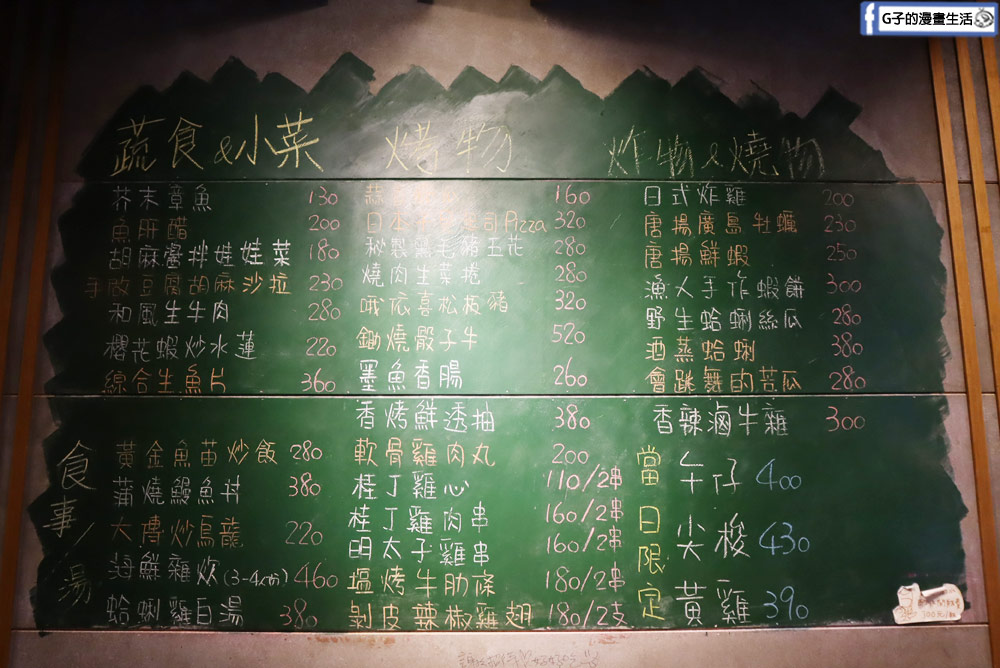 G子的漫畫生活
蔬食&小菜
芥末章魚 130
魚肝醋 200
胡麻醬拌娃娃菜 180
手做豆腐胡麻沙拉 230
和風生牛肉 280
櫻花蝦炒水蓮 220
綜合生魚片 360
食事/湯
黃金魚苗炒飯 280
蒲燒鰻魚丼 380
大傅炒烏龍 220
海鮮雜炊(3-4人份) 460
蛤蜊雞白湯 380
烤物
160
日本 司Pizza 320
秘製黑毛豬五花 280
燒肉生菜捲 280
哦依喜松板豬 320
鋤燒骰子牛 520
墨魚香腸 260
香烤鮮透抽 380
軟骨雞肉丸 200
桂丁雞心 110/2串
桂丁雞肉串 160/2串
明太子雞串 160/2串
塩烤牛肋條 180/2串
剝皮辣椒雞翅 180/2支
炸物&燒物
日式炸雞 200
唐揚廣島牡蠣 230
唐揚鮮蝦 250
漁人手作蝦餅 300
野生蛤蜊絲瓜 280
酒蒸蛤蜊 380
會跳舞的苦瓜 280
香辣滷牛雜 300
當日限定
午仔 400
尖梭 430
黃雞 390